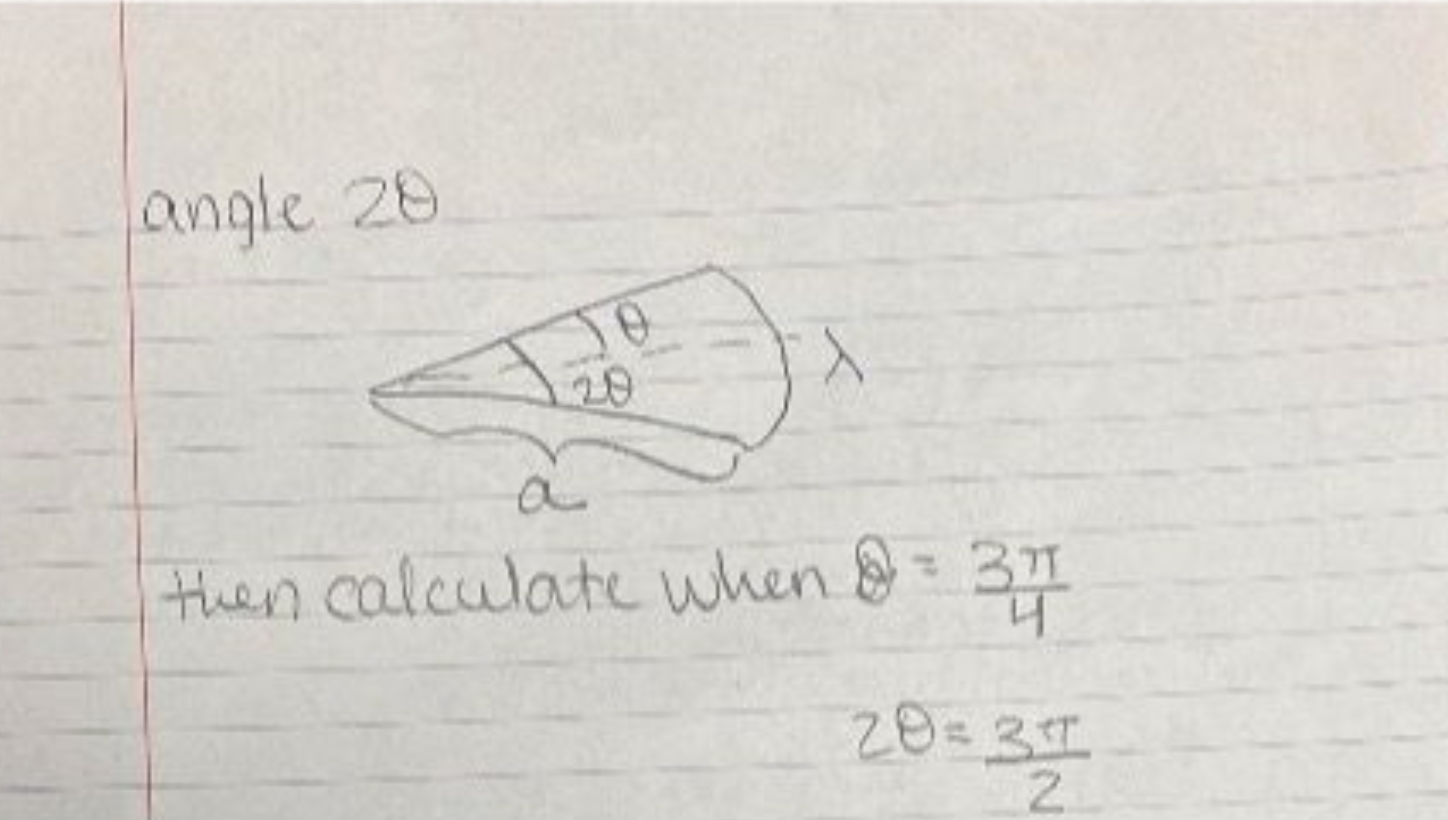 angle 2θ
θ
λ
2θ
a
then calculate when θ = 3π/4
2θ = 3π/2